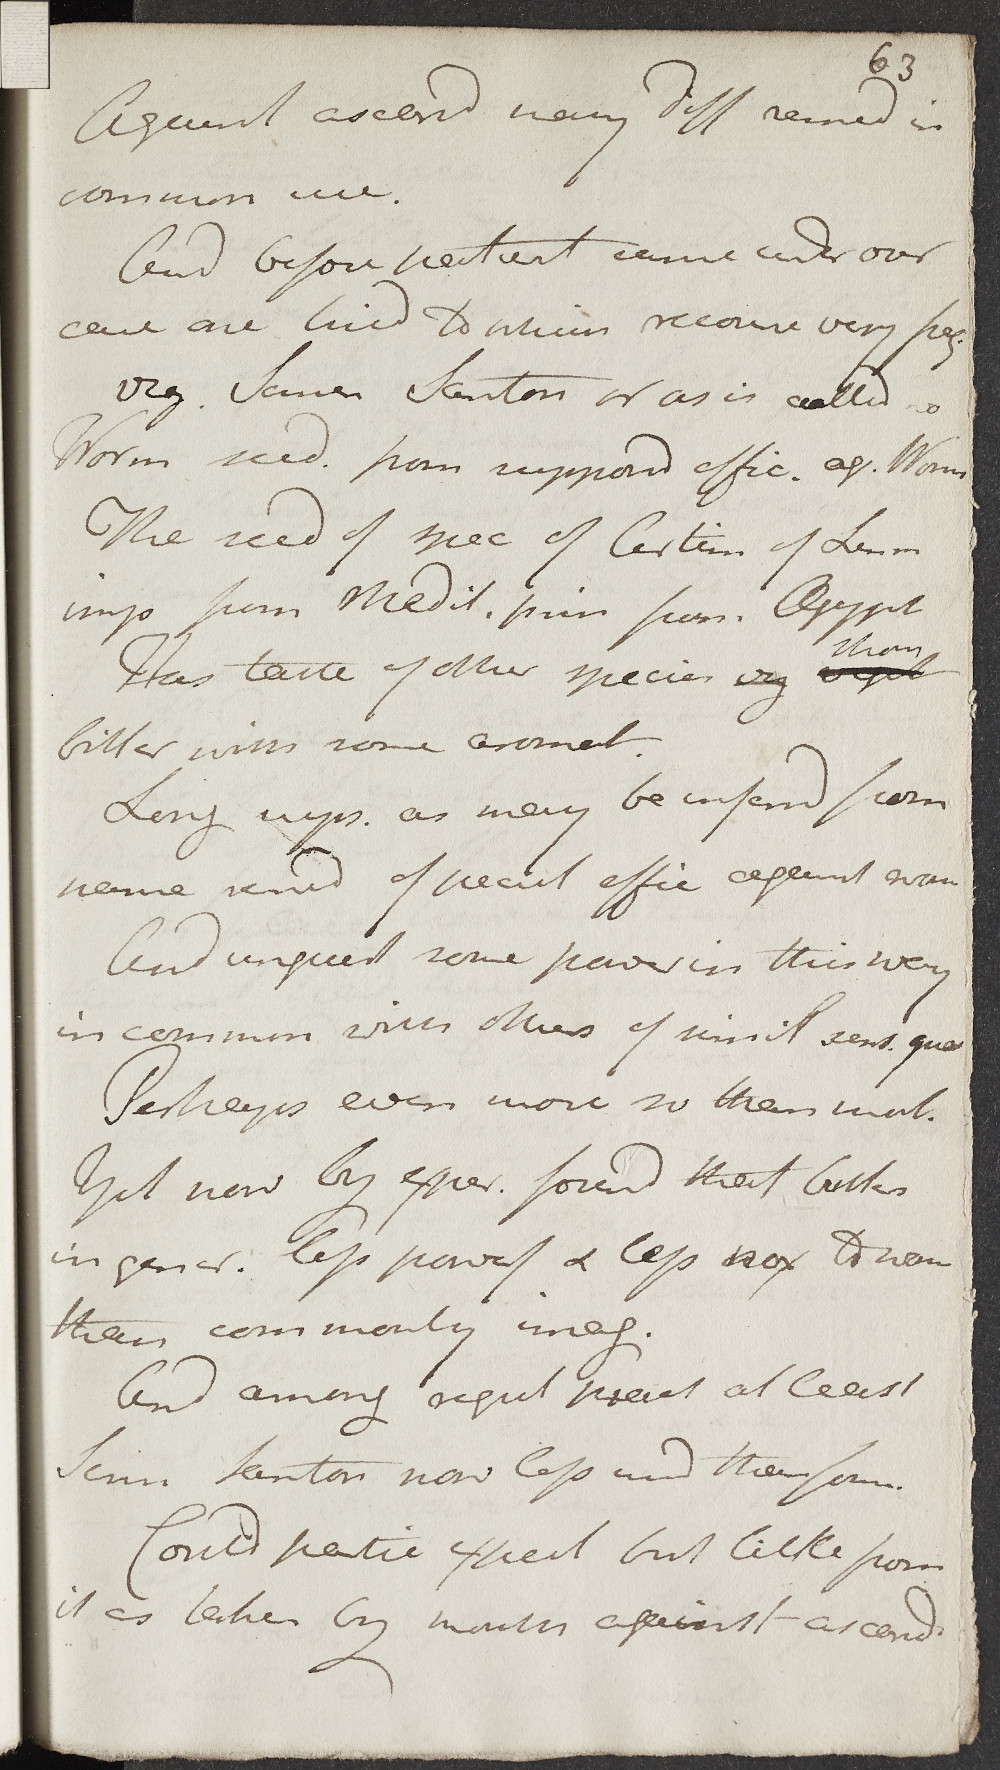 63
Against ascarid many diff remed in
common use.
And before patient came under our
care are tried to whom recourse very freq.
viz. Semen Santon or as is called
Worm seed. from supposed effic. ag. Worms
The seed of spec of Artem of Linn
imp from Medit. prin from Egypt
Has taste of other species viz ~~veget~~ stron
bitter with some aromat.
Long supp. as may be inferred from
name remed of pecul effic against worm
And unquest some power in this way
in common with others of simil sens. qual
Perhaps even more so than most.
Yet now by exper. found that bitters
in gener. less powerf & less nox to worm
than commonly imag.
And among regul pract at least
Semn Santon now less used than form.
Could partic expect but little from
it as taken by mouth against ascarid.